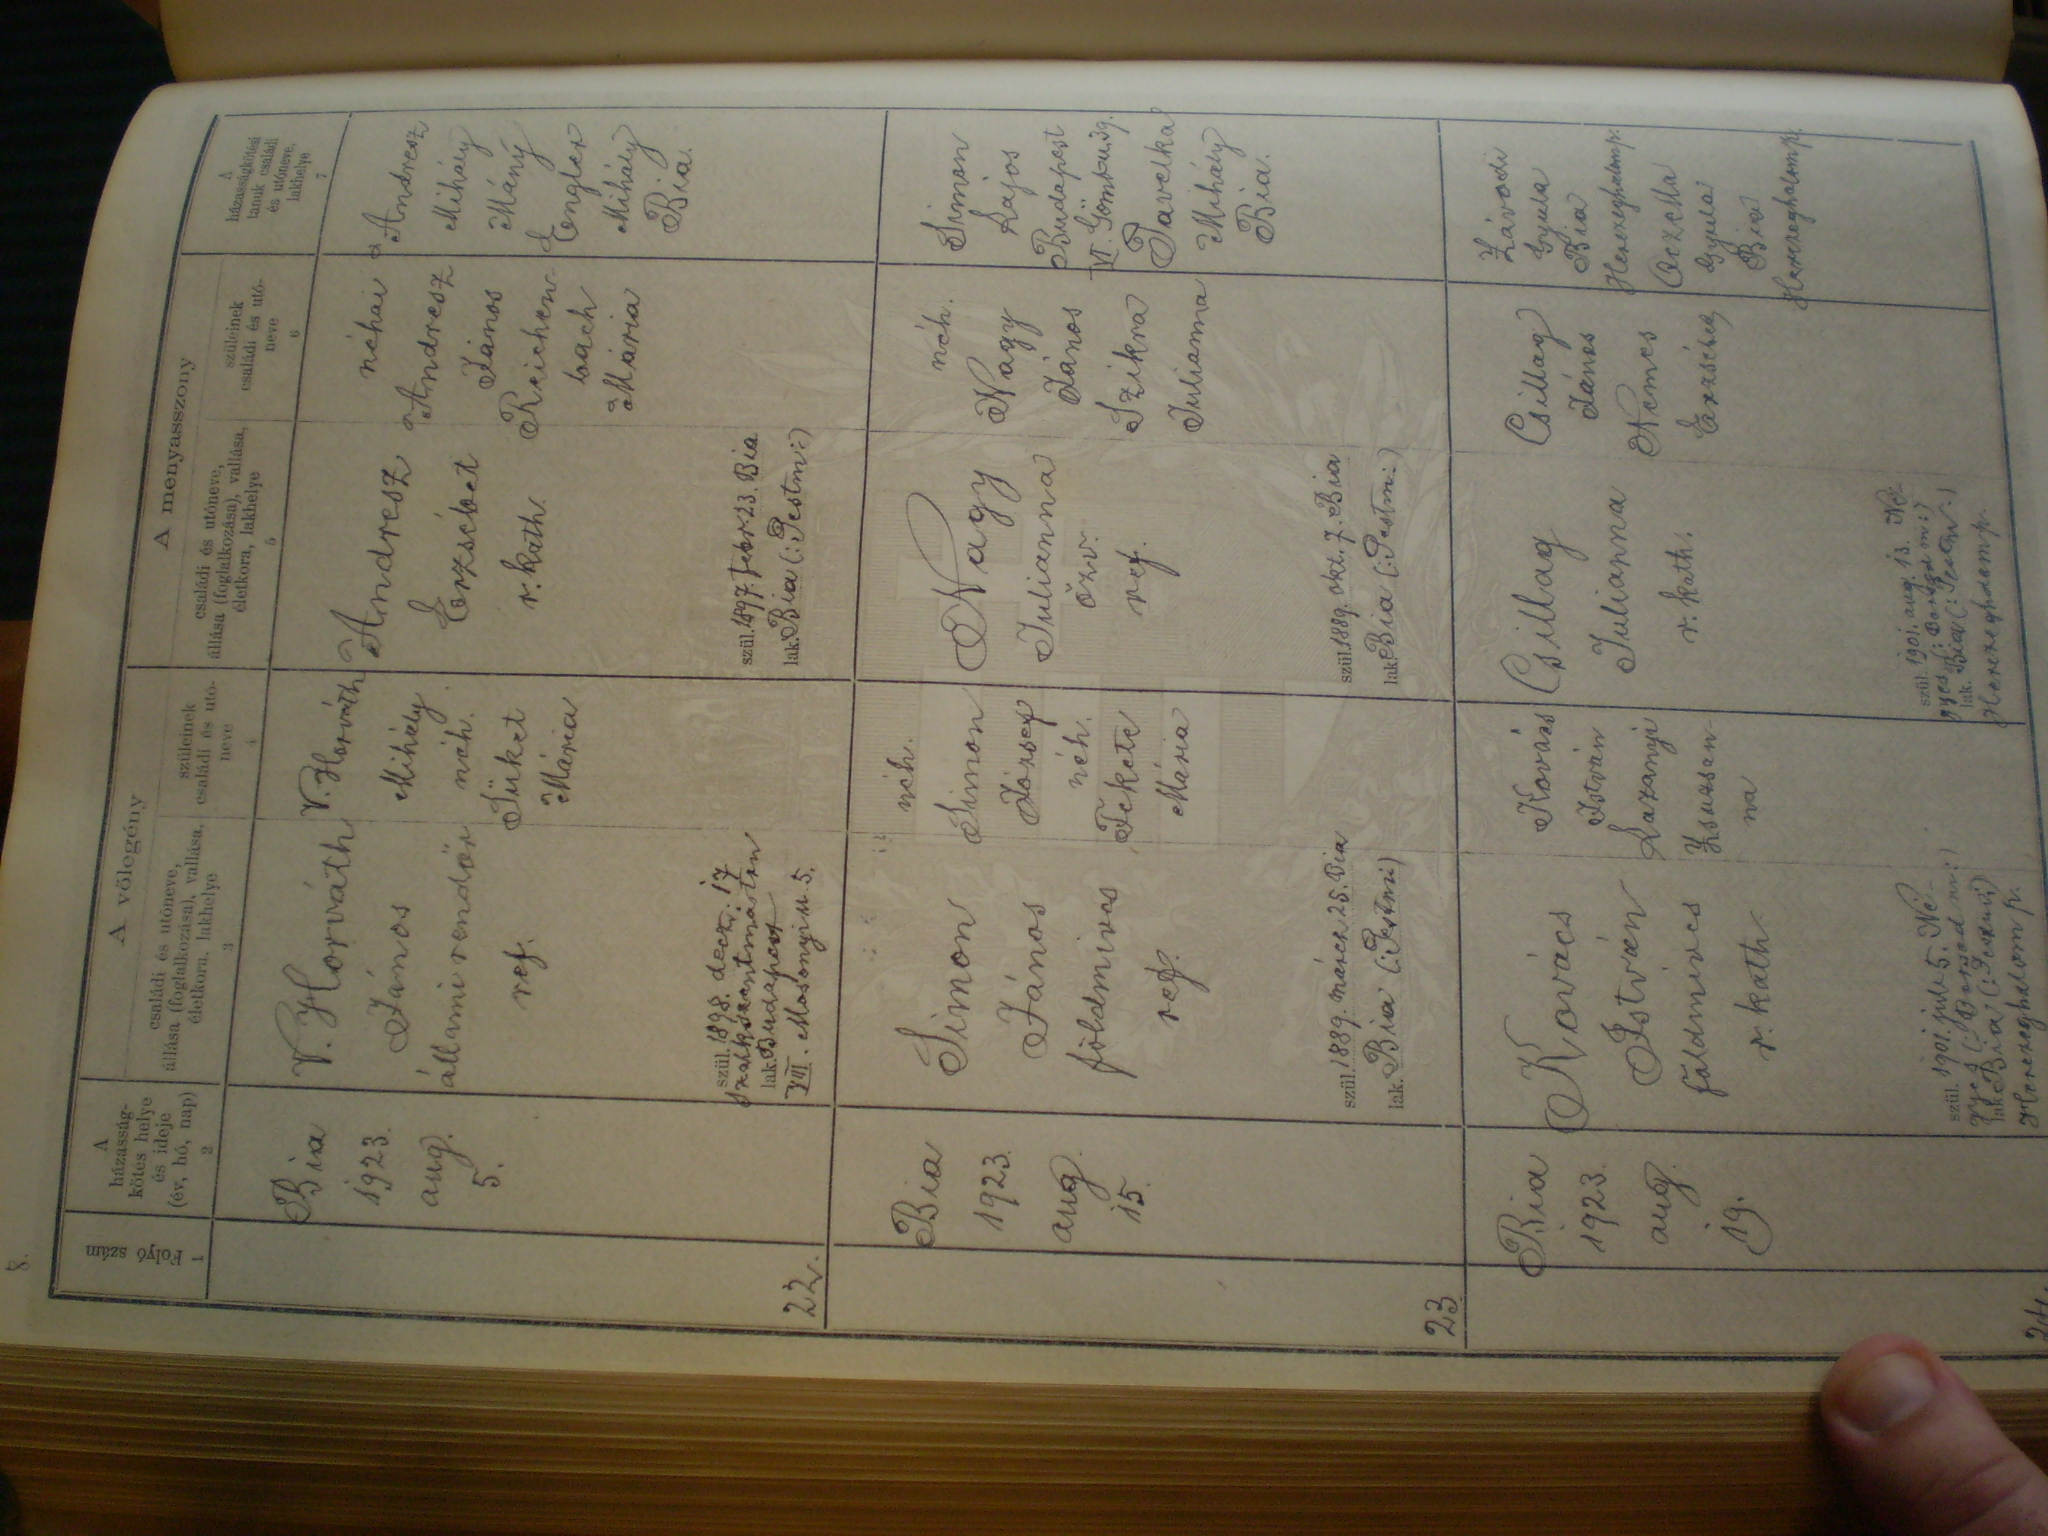 8.
Folyó szám
1
A
házasság-
kötés helye
és ideje
(év, hó, nap)
2
A vőlegény
családi és utóneve,
állása (foglalkozása), vallása,
életkora, lakhelye
3
szüleinek
családi és utó-
neve
4
A menyasszony
családi és utóneve,
állása (foglalkozása), vallása,
életkora, lakhelye
5
szüleinek
családi és utó-
neve
6
A
házasságkötési
tanuk családi
és utóneve,
lakhelye
7
22.
Bia
1923.
aug.
5.
V. Horváth
János
állami rendőr
ref.
szül. 1898. decz. 17
Szalkszentmárton
lak. Budapest
VIII. Mosonyi u. 5.
V. Horváth
Mihály
néh.
Süket
Mária
Andresz
Erzsébet
r. kath.
szül. 1897. febr. 23. Bia
lak. Bia (: Pestm :)
néhai
Andresz
János
Reichen-
bach
Mária
Andresz
Mihály
Mány
Engler
Mihály
Bia.
23
Bia
1923.
aug.
15.
Simon
János
földmives
ref.
szül. 1889. márcz 25. Bia
lak. Bia (: Pestm :)
néh.
Simon
József
néh.
Fekete
Mária
Nagy
Julianna
özv.
ref.
szül. 1889. okt. 7. Bia
lak. Bia (: Pestm :)
néh.
Nagy
János
Szikra
Julianna
Simon
Lajos
Budapest
VI. Gömb u. 39.
Pavelka
Mihály
Bia.
24.
Bia
1923.
aug.
19.
Kovács
István
földmives
r. kath.
szül. 1901. juli 5. Né-
gyes (: Borsod m :)
lak. Bia (: Pestm :)
Herczeghalom p.
Kovács
István
Kazanyi
Zsuzsan-
na
Csillag
Julianna
r. kath.
szül. 1901. aug. 13. Né-
gyes (: Borsod m :)
lak. Bia (: Pestm :)
Herczeghalom p.
Csillag
János
Nemes
Erzsébet
Závodi
Gyula
Bia
Herczeghalom p.
Gyula
Bia
Herczeghalom p.